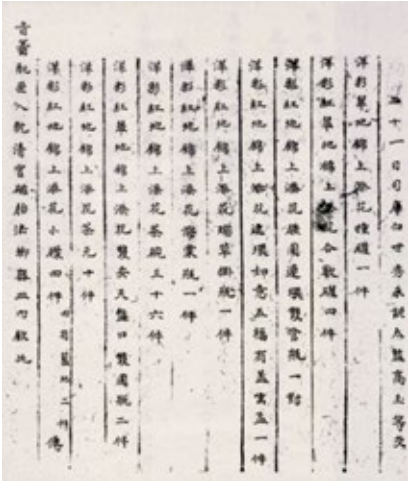 二十一日司庫白世秀來說太監高玉等交
洋彩翠地錦上添花罇一件
洋彩紅翠地錦上添花合歡罇四件
洋彩紅地錦上添花腰圓連環雙管瓶一對
洋彩紅地錦上添花連環如意五福有蓋蓋一件
洋彩紅地錦上添花瑞草掛瓶一件
洋彩紅地錦上添花瓶一件
洋彩紅地錦上添花茶碗三十六件
洋彩紅翠地錦上添花雙安天盤口雙圓瓶二件
洋彩紅地錦上添花茶元十件
洋彩紅地錦上添花小罇四件 內有藍地二件 傳
旨著配匣入乾清宮琺瑯器皿內欽此